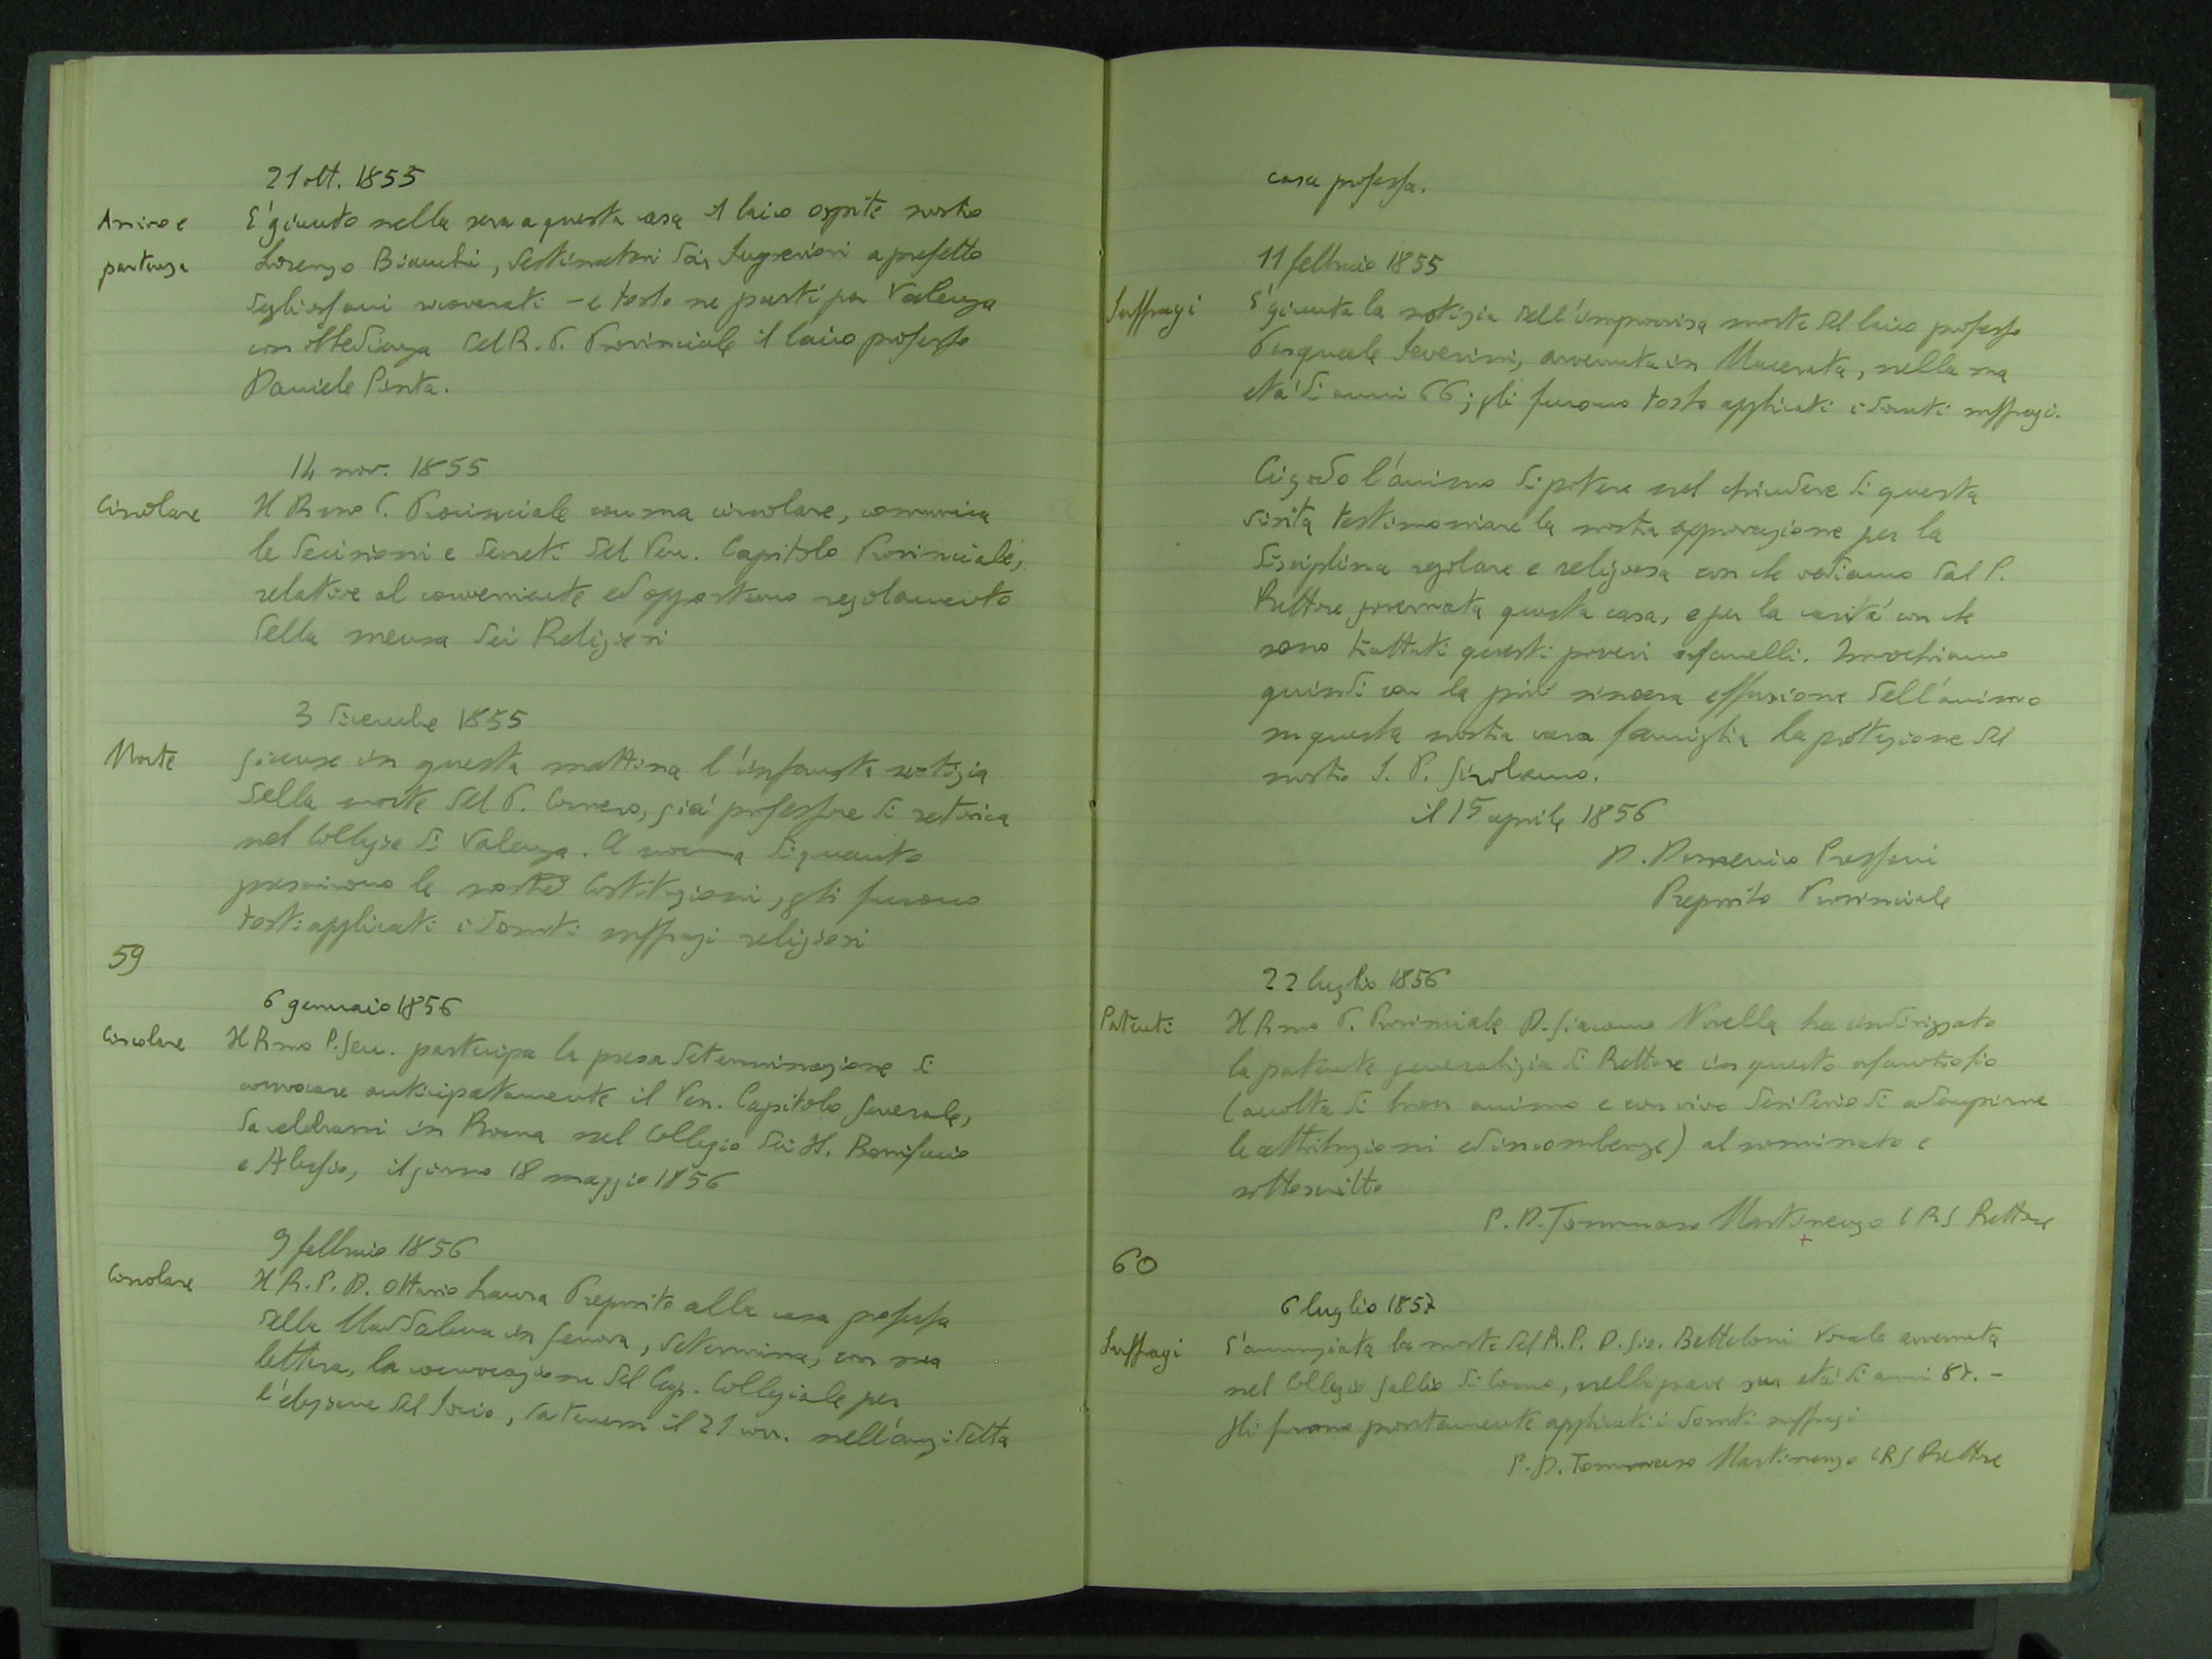 21 ott. 1855
Arrivo e
partenza
E' giunto nella sera a questa casa il laico ospite nostro
Lorenzo Bianchi, destinatovi dai Superiori a prefetto
degli orfani ricoverati - e tosto ne partì per Valenza
con obbedienza del R. P. Provinciale il laico professo
Daniele Pinta.
14 nov. 1855
Circolare
Il Rmo P. Provinciale con sua circolare, comunica
le decisioni e decreti del Ven. Capitolo Provinciale,
relative al conveniente ed opportuno regolamento
della mensa dei Religiosi
3 dicembre 1855
Morte
Giunse in questa mattina l'infausta notizia
della morte del P. Cornero, già professore di retorica
nel Collegio di Valenza. A norma di quanto
prescrivono le nostre Costituzioni, gli furono
tosto applicati i dovuti suffragi religiosi
59
6 gennaio 1856
Circolare
Il Rmo P. Gen. partecipa la presa determinazione di
convocare anticipatamente il Ven. Capitolo Generale,
da celebrarsi in Roma nel Collegio dei SS. Bonifacio
e Alessio, il giorno 18 maggio 1856
9 febbraio 1856
Circolare
Il R. P. D. Ottavio Laura Preposito alla casa professa
della Maddalena in Genova, determina, con sua
lettera, la convocazione del Cap. Collegiale per
l'elezione del Socio, da tenersi il 21 corr. nell'anzidetta
casa professa.
11 febbraio 1855
Suffragi
E' giunta la notizia dell'improvvisa morte del laico professo
Pasquale Severini, avvenuta in Macerata, nella sua
età di anni 66; gli furono tosto applicati i dovuti suffragi.
Ci gode l'animo di potere nel chiudere di questa
visita testimoniare la nostra approvazione per la
disciplina regolare e religiosa con che vediamo dal P.
Rettore governata questa casa, e per la carità con che
sono trattati questi poveri orfanelli. Invochiamo
quindi con la più sincera effusione dell'animo
su questa nostra cara famiglia la protezione del
nostro S. P. Girolamo.
il 15 aprile 1856
D. Domenico Pressoni
Preposito Provinciale
22 luglio 1856
Patenti
Il Rmo P. Provinciale D. Giacomo Novella ha indirizzato
la patente generalizia di Rettore in questo orfanotrofio
(accolta di buon animo e con vivo desiderio di adempirne
le attribuzioni ed incombenze) al nominato e
sottoscritto
P. D. Tommaso Martinengo CRS Rettore
60
6 luglio 1857
Suffragi
E' annunziata la morte del R. P. D. Gio. Betteloni Vocale avvenuta
nel Collegio Gallio di Como, nella grave sua età di anni 87. -
Gli furono prontamente applicati i dovuti suffragi
P. D. Tommaso Martinengo CRS Rettore